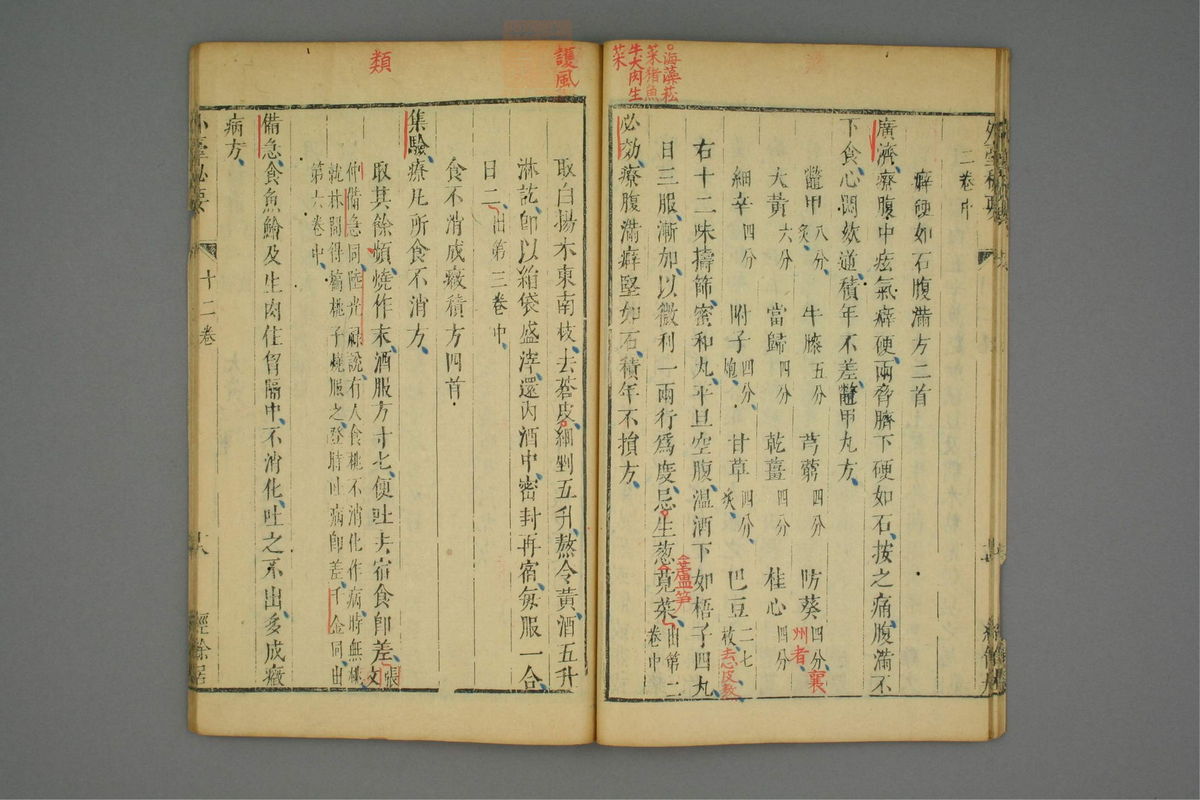 二卷中
癖硬如石腹滿方二首
廣濟療腹中痃氣癖硬兩脅臍下硬如石按之痛腹滿不
下食心悶欬逆積年不差鱉甲丸方
鱉甲八分炙 牛膝五分 芎藭四分 防葵四分 襄州者
大黃六分 當歸四分 乾薑四分 桂心四分
細辛四分 附子四分炮 甘草四分炙 巴豆二七枚去心皮熬
右十二味擣篩蜜和丸平旦空腹溫酒下如梧子四丸
日三服漸加以微利一兩行爲度忌生葱莧菜出第二卷中
蘆笋
必効療腹滿癖堅如石積年不損方
海藻菘
菜猪魚
牛犬肉生
菜
取白楊木東南枝去蒼皮細剉五升熬令黃酒五升
淋訖卽以絹袋盛滓還內酒中密封再宿每服一合
日二出第三卷中
食不消成癥積方四首
集驗療凡所食不消方
取其餘類燒作末酒服方寸匕便吐去宿食卽差張文
仲備急同陸光祿說有人食桃不消化作病時無桃
就林間得槁桃子燒服之登時吐病卽差千金同出
第六卷中
備急食魚鱠及生肉住胷膈中不消化吐之不出多成癥
病方
護風
類
十二卷
十八
經餘居